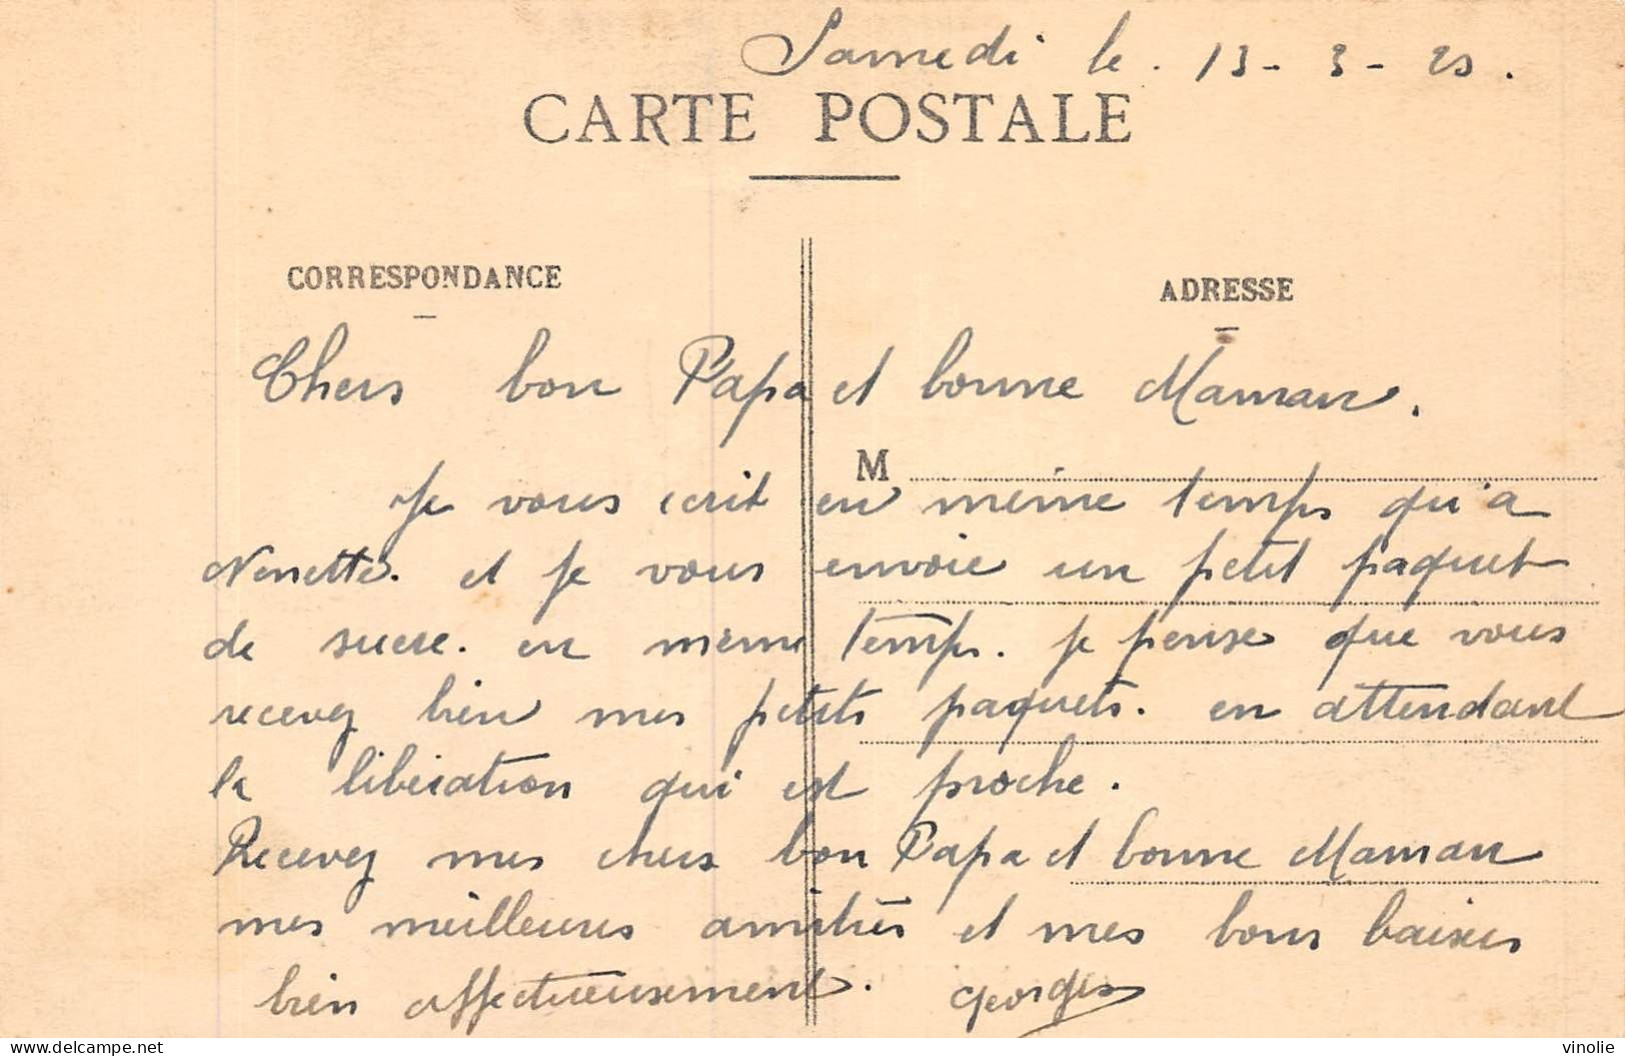 Samedi le. 13-3-20.
CARTE POSTALE
CORRESPONDANCE
ADRESSE
Chers bon Papa et bonne Maman.
M
Je vous ecrit en même temps qu'a
Nenette. et je vous envoie un petit paquet
de sucre. en même temps. je pense que vous
recevez bien mes petits paquets. en attendant
la libération qui est proche.
Recevez mes chers bon Papa et bonne Maman
mes meilleures amitiés et mes bons baisers
bien affectueusement. Georges
www.delcampe.net
vinolie